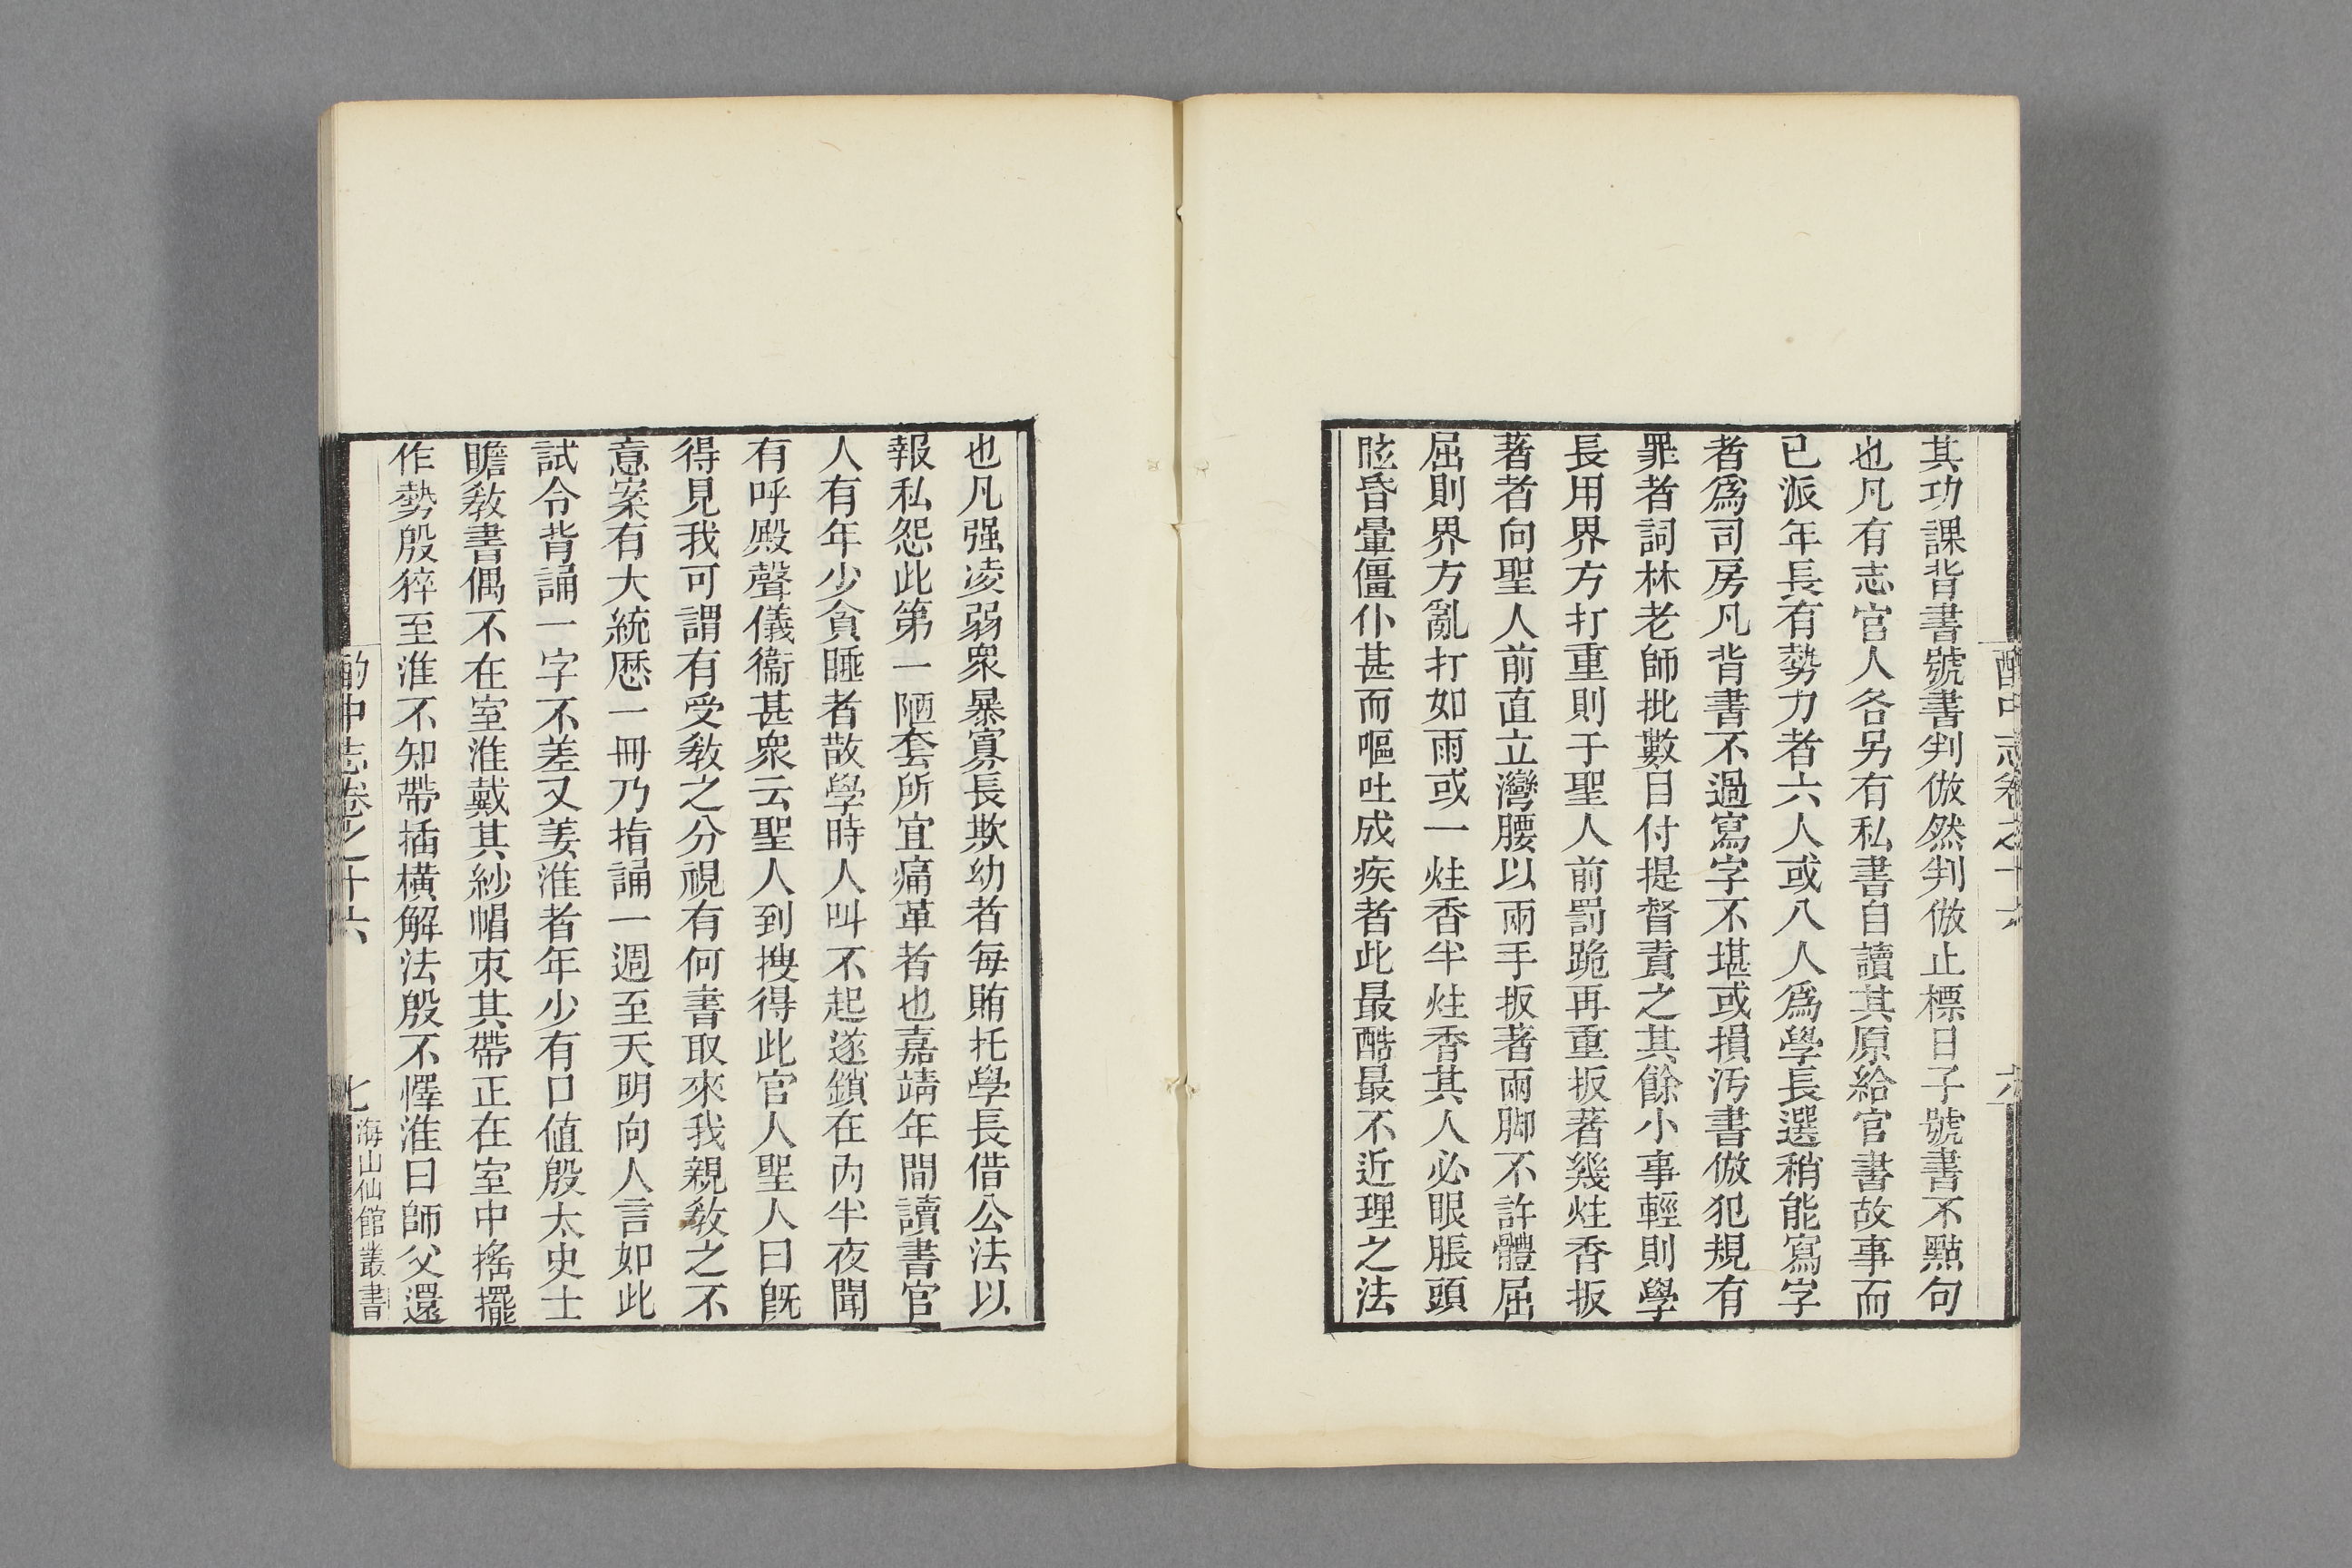 酌中志卷之十六 六
其功課背書號書判倣然判倣止標日子號書不點句
也凡有志官人各另有私書自讀其原給官書故事而
已派年長有勢力者六人或八人爲學長選稍能寫字
者爲司房凡背書不過寫字不堪或損汚書倣犯規有
罪者詞林老師批數目付提督責之其餘小事輕則學
長用界方打重則于聖人前罰跪再重扳著幾炷香扳
著者向聖人前直立灣腰以兩手扳著兩脚不許體屈
屈則界方亂打如雨或一炷香半炷香其人必眼脹頭
眩昏暈僵仆甚而嘔吐成疾者此最酷最不近理之法
也凡强凌弱衆暴寡長欺幼者每賄托學長借公法以
報私怨此第一陋套所宜痛革者也嘉靖年間讀書官
人有年少貪睡者散學時人叫不起遂鎖在內半夜聞
有呼殿聲儀衞甚衆云聖人到搜得此官人聖人曰旣
得見我可謂有受敎之分視有何書取來我親敎之不
意案有大統歷一冊乃指誦一週至天明向人言如此
試令背誦一字不差又姜淮者年少有口值殷太史士
瞻敎書偶不在室淮戴其紗帽束其帶正在室中搖擺
作勢殷猝至淮不知帶插橫解法殷不懌淮曰師父還
酌中志卷之十六 七 海山仙館叢書